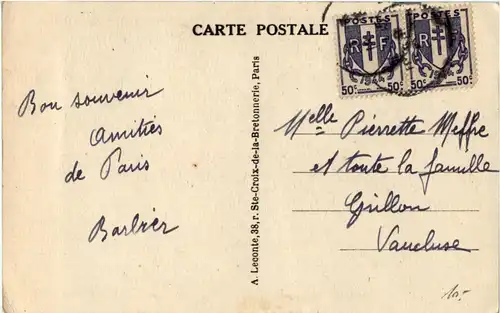 CARTE POSTALE
POSTES POSTES
RF RF
50c 50c 50c 50c
Bon souvenir
Amitiés
de Paris
Barbier
A. Leconte, 38, r. Ste-Croix-de-la-Bretonnerie, Paris
Melle Pierrette Meffre
et toute la famille
Grillon
Vaucluse